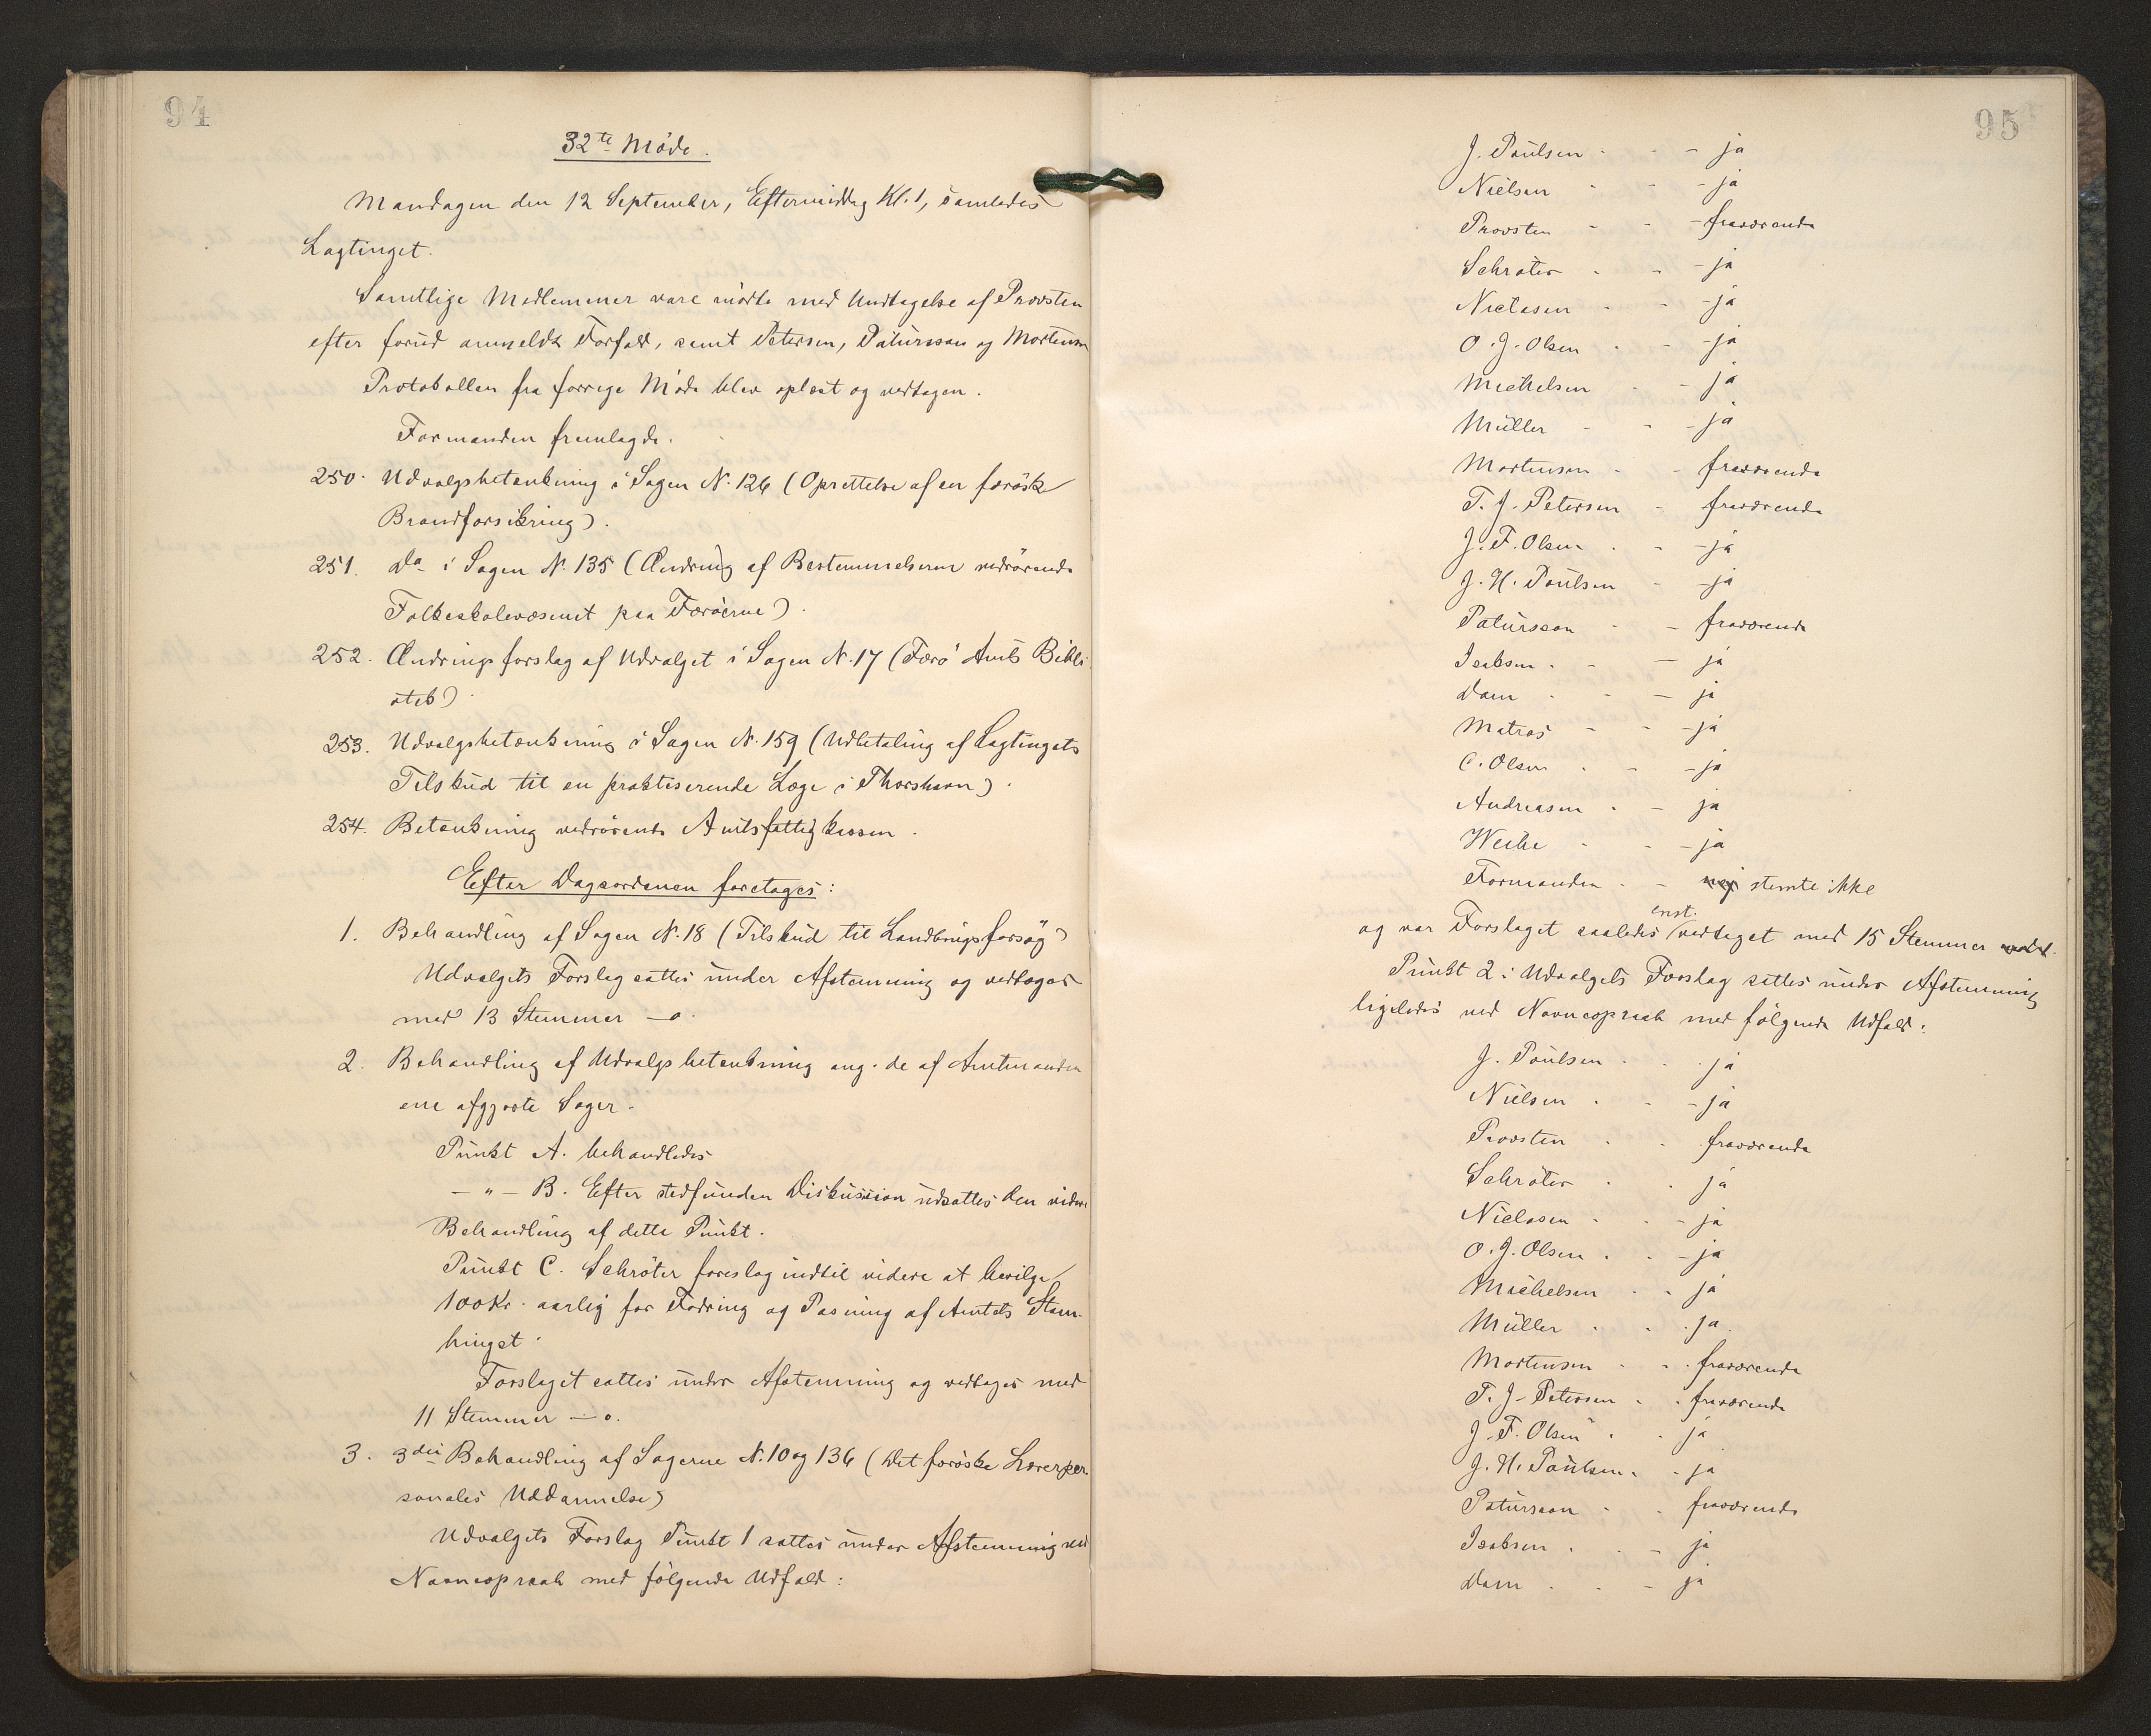 94
32te Møde.
Mandagen den 12 September, Eftermiddag Kl. 1, samledes
Lagtinget.
Samtlige Medlemmer vare mødte med Undtagelse af Provsten
efter forud anmeldt Forfald, samt Petersen, Patursson og Mortensen
Protokollen fra forrige Møde blev oplæst og vedtagen.
Formanden fremlagde.
250. Udvalgsbetænkning i Sagen N. 126 (Oprettelse af en færøsk
Brandforsikring).
251. Do i Sagen N. 135 (Ændring af Bestemmelserne vedrørende
Folkeskolevæsenet paa Færøerne).
252. Ændringsforslag af Udvalget i Sagen N. 17 (Færø Amts Bibli
otek)
253. Udvalgsbetænkning i Sagen N. 159 (Udbetaling af Lagtingets
Tilskud til en praktiserende Læge i Thorshavn).
254. Betænkning vedrørende Amtsfattigkassen.
Efter Dagsordenen foretages:
1. Behandling af Sagen N. 18 (Tilskud til Landbrugsforsøg)
Udvalgets Forslag sattes under Afstemning og vedtoges
med 13 Stemmer — o.
2. Behandling af Udvalgsbetænkning ang. de af Amtmanden
ene afgjorte Sager.
Punkt A. behandledes
— " — B. Efter stedfunden Diskussion udsattes den videre
Behandling af dette Punkt.
Punkt C. Schrøter foreslog indtil videre at bevilge
100 Kr. aarlig for Fodring og Pasning af Amtets Stam-
hingst.
Forslaget sattes under Afstemning og vedtoges med
11 Stemmer — o.
3. 3die Behandling af Sagerne N. 10 og 136 (Det færøske Lærerper-
sonales Uddannelse)
Udvalgets Forslag Punkt 1 sattes under Afstemning ved
Navneopraab med følgende Udfald:
95
J. Poulsen - - - ja
Nielsen - - - ja
Provsten - - - fraværende
Schrøter - - - ja
Niclasen - - - ja
O. J. Olsen - - - ja
Michelsen - - - ja
Müller - - - ja
Mortensen - - fraværende
T. J. Petersen - fraværende
J. F. Olsen - - - ja
J. H. Poulsen - - ja
Patursson - - fraværende
Isaksen - - - ja
Dam - - - ja
Matras - - - ja
C. Olsen - - - ja
Andreasen - - ja
Weihe - - - ja
Formanden - - nej stemte ikke
enst.
og var Forslaget saaledes vedtaget med 15 Stemmer
Punkt 2 i Udvalgets Forslag sattes under Afstemning
ligeledes ved Navneopraab med følgende Udfald:
J. Poulsen - - ja
Nielsen - - - ja
Provsten - - fraværende
Schrøter - - ja
Niclasen - - - ja
O. J. Olsen - - - ja
Michelsen - - ja
Müller - - - ja
Mortensen - - fraværende
T. J. Petersen - - fraværende
J. F. Olsen - - ja
J. H. Poulsen - - ja
Patursson - - fraværende
Isaksen - - - ja
Dam - - - ja